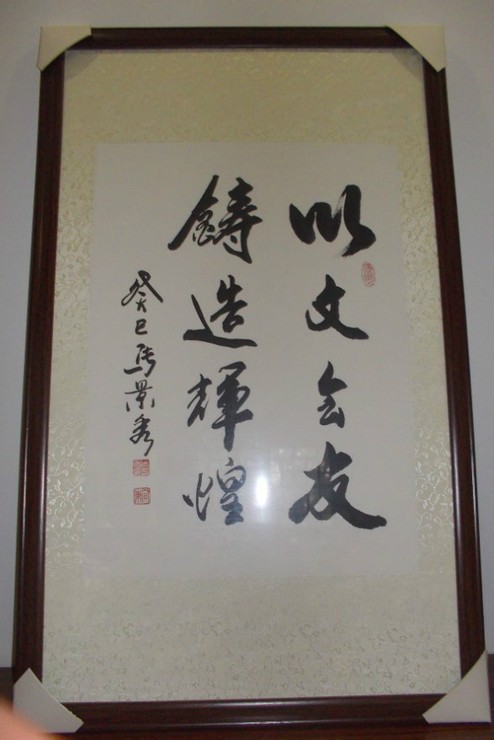 以文会友
鑄造輝煌
癸巳馬景秀